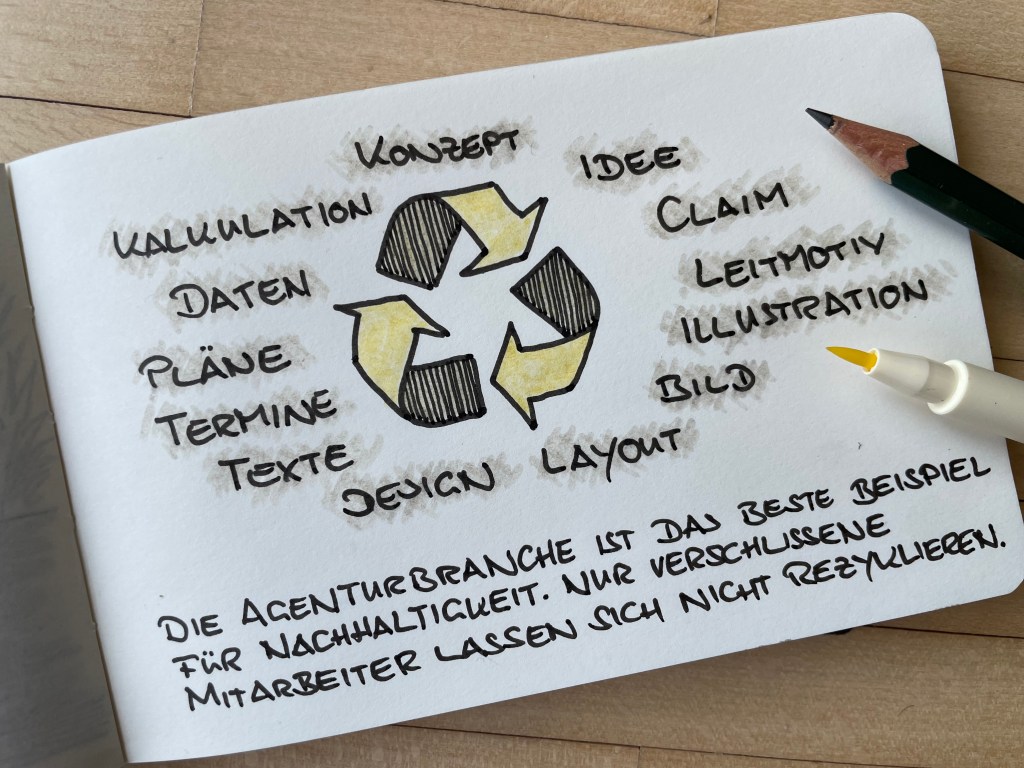 KONZEPT
IDEE
CLAIM
LEITMOTIV
ILLUSTRATION
BILD
LAYOUT
DESIGN
TEXTE
TERMINE
PLÄNE
DATEN
KALKULATION
DIE AGENTURBRANCHE IST DAS BESTE BEISPIEL
FÜR NACHHALTIGKEIT. NUR VERSCHLISSENE
MITARBEITER LASSEN SICH NICHT REZYKLIEREN.